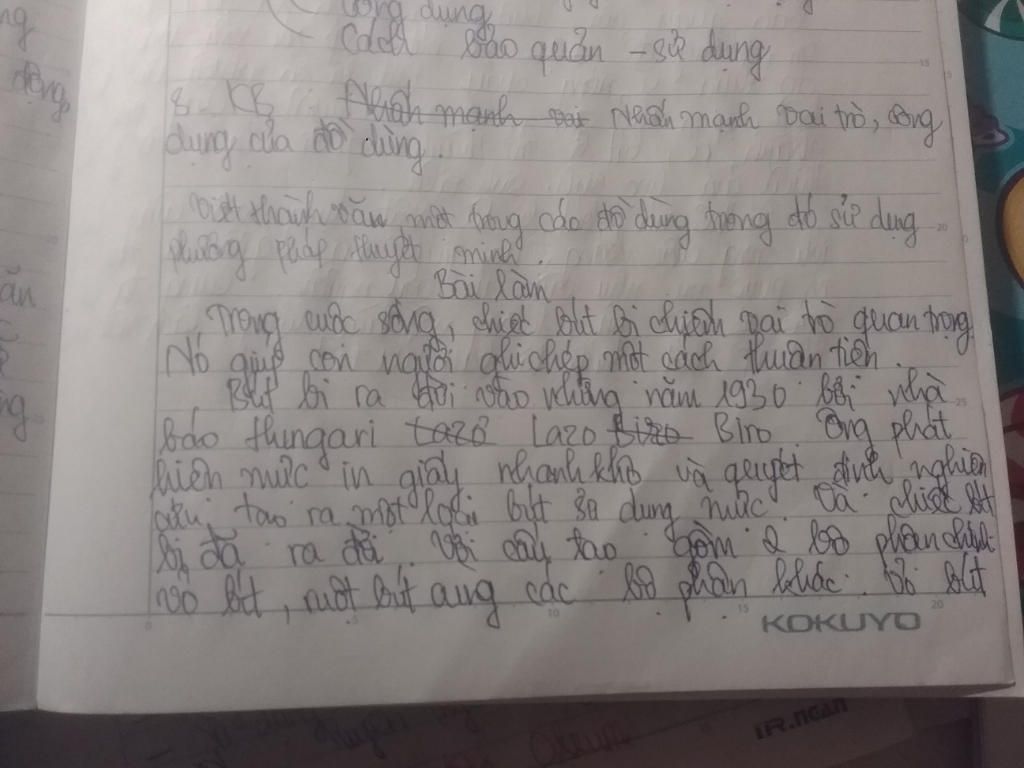 ng
động,
ăn
ng.
Công dụng
Cách bảo quản - sử dụng
KB: Nhấn mạnh vai Nhấn mạnh vai trò, công
dụng của đồ dùng.
Viết thành văn một trong các đồ dùng trong đó sử dụng
phương pháp thuyết minh.
Bài làm
Trong cuộc sống, chiếc bút bi chiếm vai trò quan trọng
Nó giúp con người ghi chép một cách thuận tiện.
Bút bi ra đời vào những năm 1930 bởi nhà
báo Hungari Lazo Lazo Biro Biro. Ông phát
hiện mực in giấy nhanh khô và quyết định nghiên
cứu, tạo ra một loại bút sử dụng mực. Và chiếc bút
bi đã ra đời. Với cấu tạo gồm 2 bộ phận chính:
vỏ bút, ruột bút cùng các bộ phận khác. Vỏ bút
0 5 10 15 20
15
20
25
KOKUYO